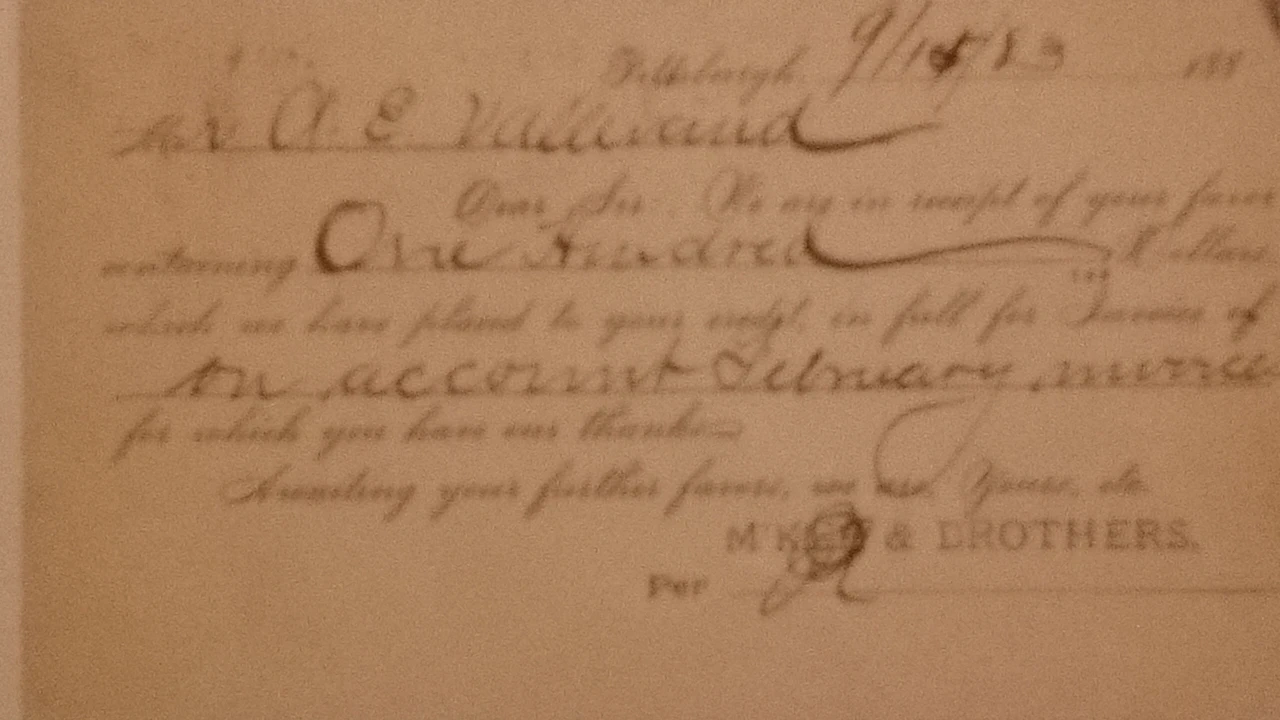 Pittsburgh, 9/14/83 188
Mr A. E.
Dear Sir: We are in receipt of your favor
containing One Hundred Dollars
which we have placed to your credit, in full for Invoice of
on account February
for which you have our thanks
Awaiting your further favors, we are, Yours, etc.
M'KEE & BROTHERS.
Per